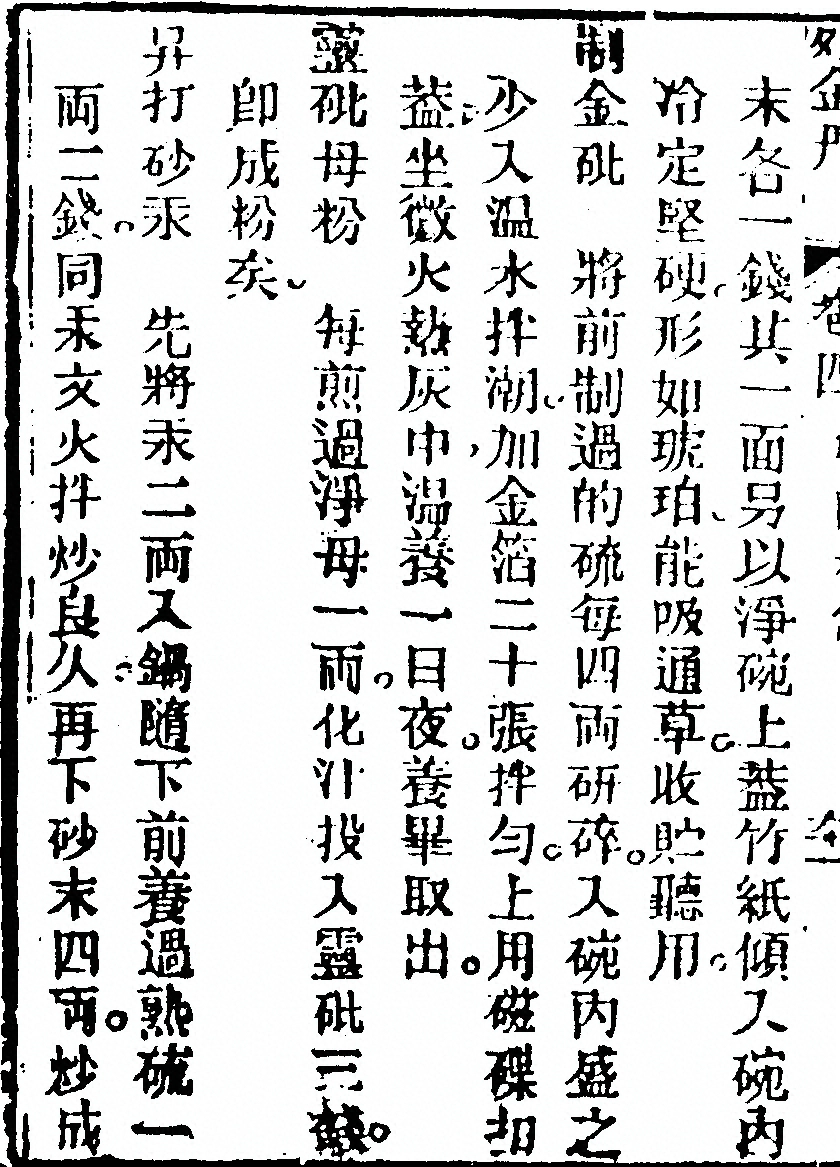 末各一錢共一面另以淨碗上蓋竹紙傾入碗內
冷定堅硬形如琥珀能吸通草收貯聽用
制金砒　將前制過的硫每四兩研碎入碗內盛之
少入温水拌潮加金箔二十張拌勻上用磁碟扣
蓋坐微火熱灰中温養一日夜養畢取出
靈砒母粉　每煎過淨母一兩化汁投入靈砒三錢
卽成粉矣
升打砂汞　先將汞二兩入鍋隨下前養過熟硫一
兩二錢同汞文火拌炒良久再下砂末四兩炒成